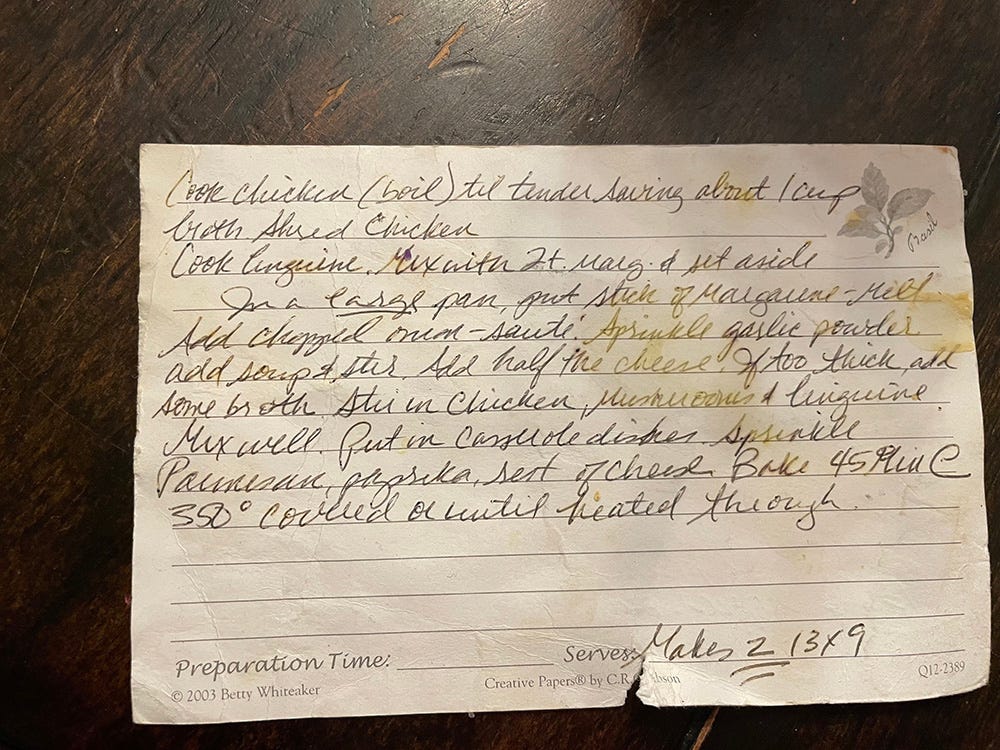 Cook chicken (boil) til tender saving about 1 cup
broth. Shred Chicken
Basil
Cook linguine. Mix with 2t. Marg. & set aside
In a large pan, put stick of Margarine - Melt.
Add chopped onion - sauté. Sprinkle garlic powder.
add soup & stir. Add half the cheese. If too thick, add
some broth. Stir in Chicken, Mushrooms & linguine.
Mix well. Put in casserole dishes. Sprinkle
Parmesan, paprika, rest of cheese. Bake 45 Min @
350° covered or until heated through.
Preparation Time:
Serves: Makes 2 13x9
© 2003 Betty Whiteaker
Creative Papers® by C.R.
Q12-2389